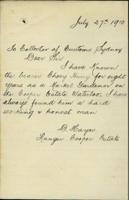 July 27th 1910
To Collector of Customs Sydney
Dear Sir
I have known
the bearer Chong Hing for eight
years as a Market Gardener on
the Cooper Estate Waterloo. I have
always found him a hard
working & honest man
D. Mayer
Ranger Cooper Estate